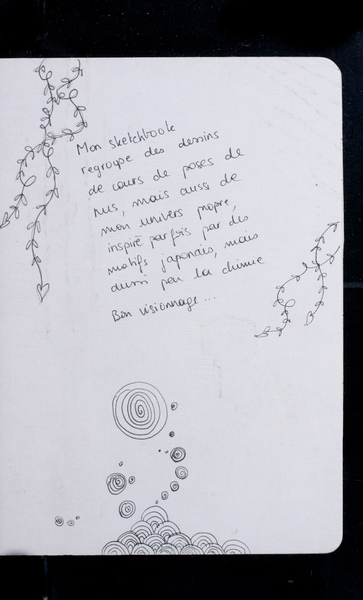 Mon sketchbook
regroupe des dessins
de cours de poses de
nus, mais aussi de
mon univers propre,
inspiré parfois par des
motifs japonais, mais
aussi par la chimie
Bon visionnage...